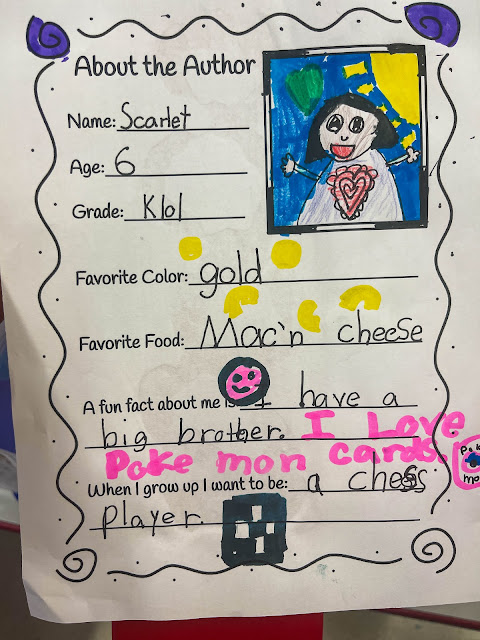 About the Author
Name: Scarlet
Age: 6
Grade: K101
Favorite Color: gold
Favorite Food: Mac'n cheese
A fun fact about me is: I have a
big brother. I Love
Poke mon cards.
Poke
mo
When I grow up I want to be: a chess
player.